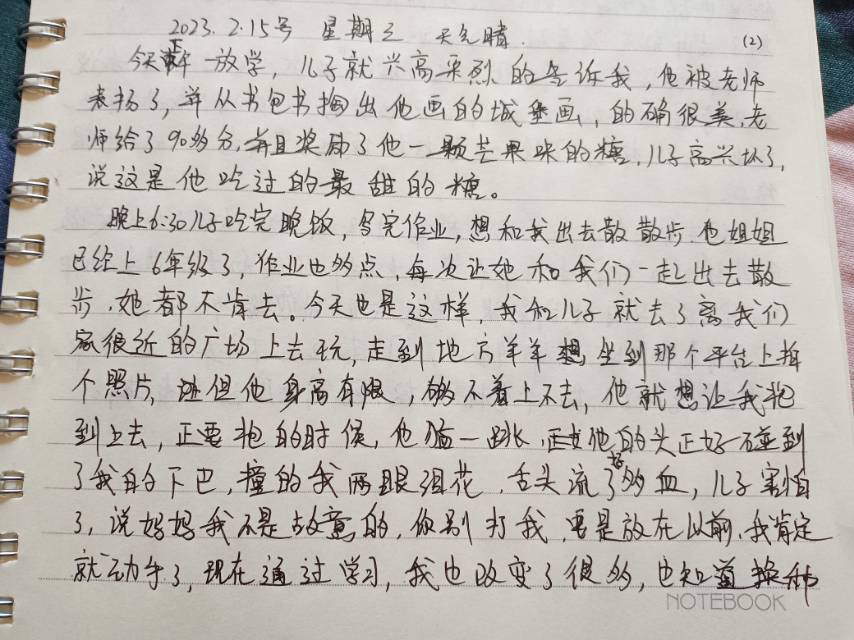 2023. 2.15号 星期三 天气晴.
(2)
今天下午一放学, 儿子就兴高采烈的告诉我, 他被老师
表扬了, 并从书包书掏出他画的城堡画, 的确很美, 老
师给了90多分, 并且奖励了他一颗芒果味的糖, 儿子高兴坏了,
说这是他吃过的最甜的糖。
晚上6:30儿子吃完晚饭, 写完作业, 想和我出去散散步. 他姐姐
已经上6年级了, 作业也多点, 每次让她和我们一起出去散
步, 她都不肯去。今天也是这样, 我和儿子就去了离我们
家很近的广场上去玩, 走到地方羊羊想坐到那个平台上拍
个照片, 但他身高有限, 够不着上不去, 他就想让我抱
到上去, 正要抱的时候, 他猛一跳, 他的头正好碰到
了我的下巴, 撞的我两眼泪花, 舌头流了好多血, 儿子害怕
了, 说妈妈我不是故意的, 你别打我, 要是放在以前, 我肯定
就动手了, 现在通过学习, 我也改变了很多, 也知道换种
NOTEBOOK